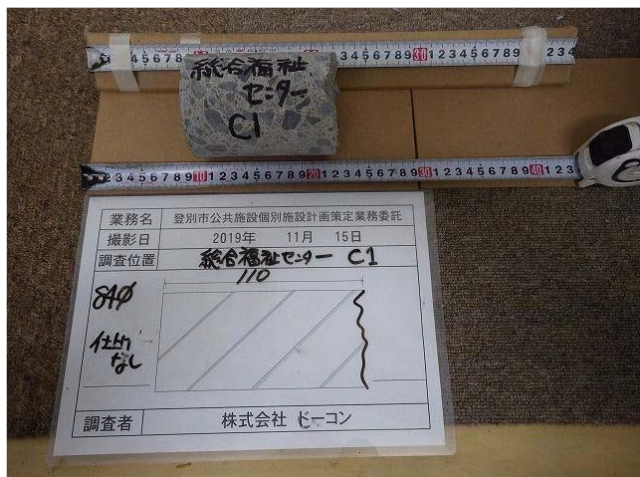 総合福祉
センター
C1
業務名 登別市公共施設個別施設計画策定業務委託
撮影日 2019年 11月 15日
調査位置 総合福祉センター C1
110
84φ
仕上げ
なし
調査者 株式会社 ドーコン